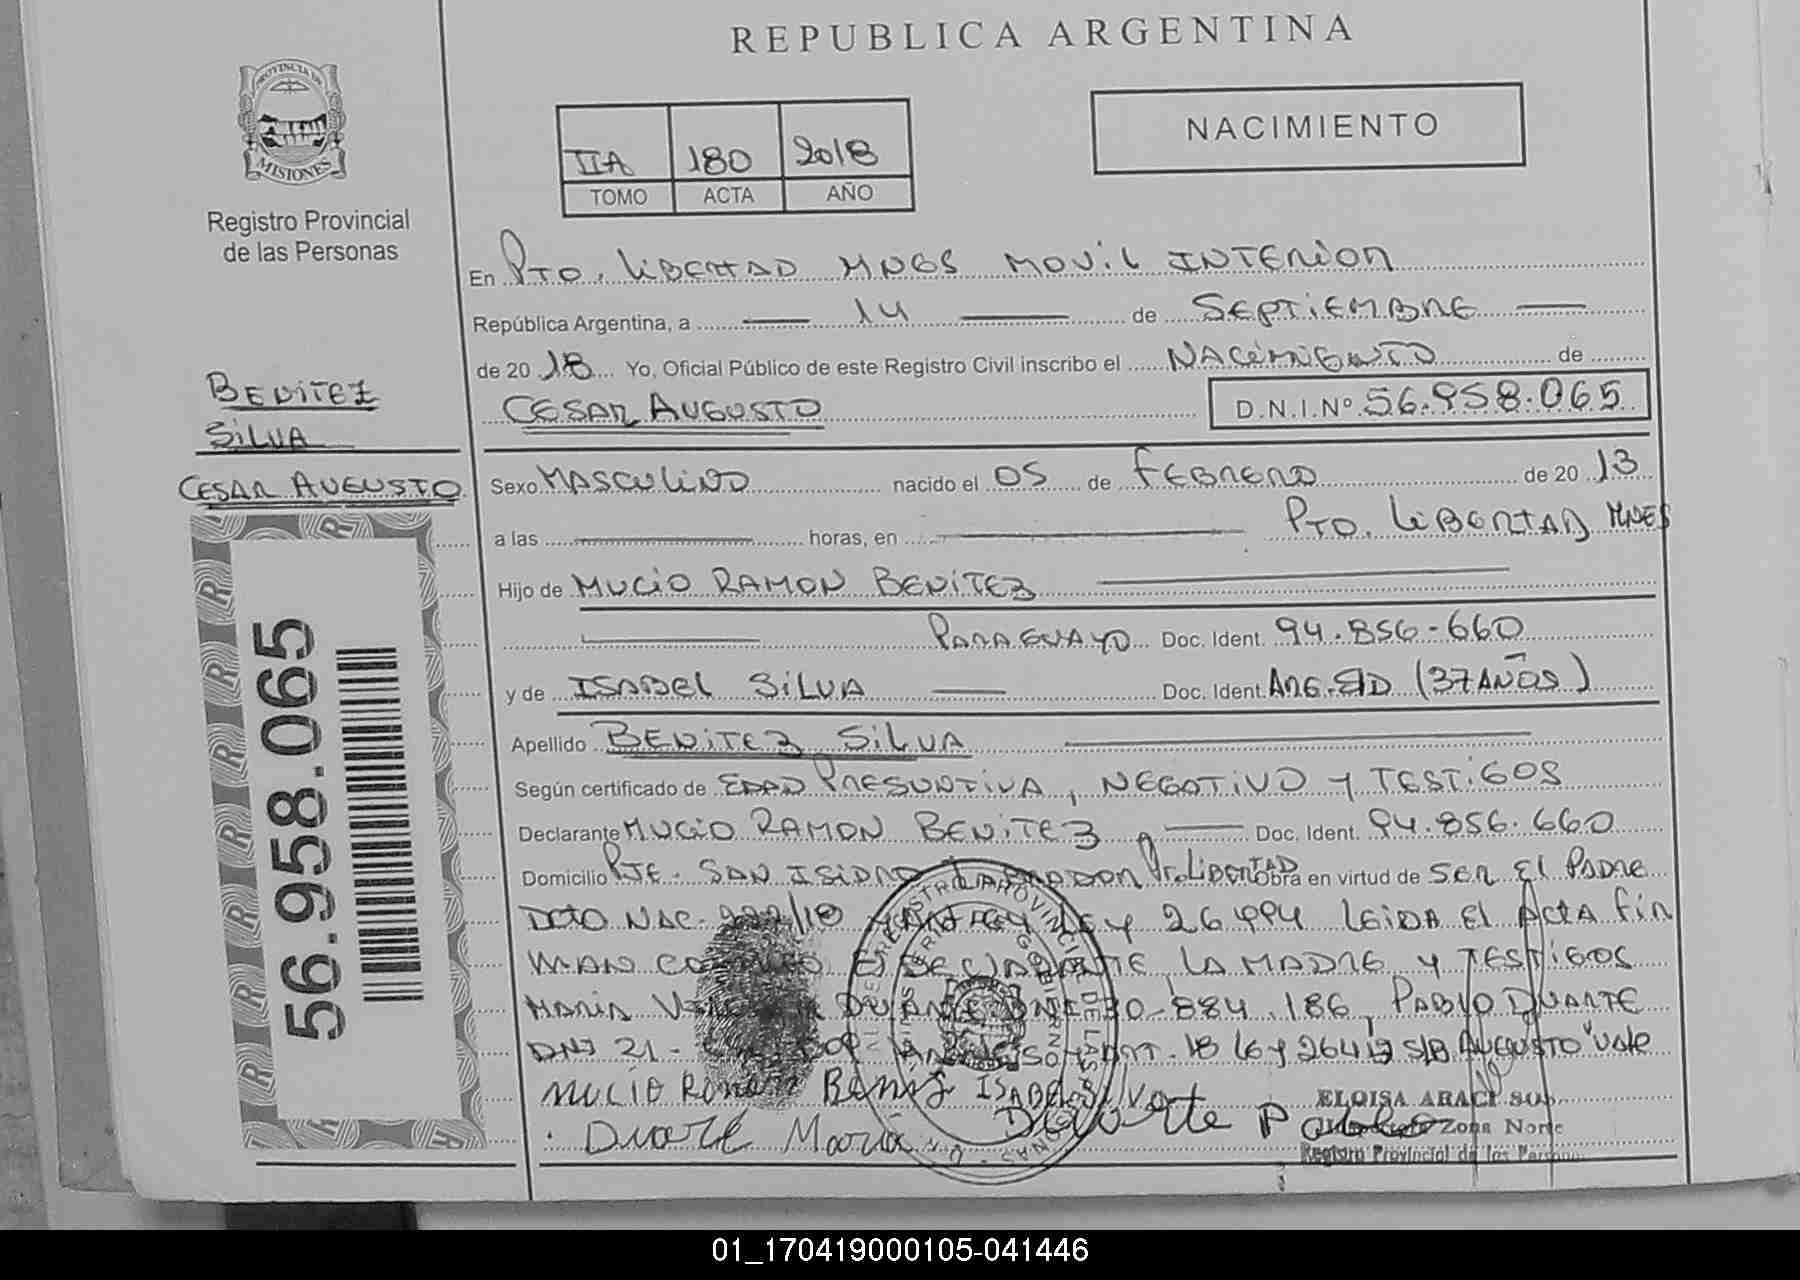 REPUBLICA ARGENTINA
PROVINCIA DE
MISIONES
Registro Provincial
de las Personas
IIA 180 2018
TOMO ACTA AÑO
NACIMIENTO
En Pto. Libertad MNES MOVIL INTERIOR
República Argentina, a 14 de SEPTIEMBRE
de 20 18 Yo, Oficial Público de este Registro Civil inscribo el NACIMIENTO de
CESAR AUGUSTO D.N.I.Nº 56.958.065
BENITEZ
SILVA
CESAR AUGUSTO
56.958.065
Sexo MASCULINO nacido el 05 de FEBRERO de 20 13
a las horas, en Pto. LIBERTAD MNES
Hijo de MUCIO RAMON BENITEZ
PARAGUAYO Doc. Ident. 94.856-660
y de ISABEL SILVA Doc. Ident. ARG. S/D (37 AÑOS)
Apellido BENITEZ SILVA
Según certificado de EDAD PRESUNTIVA, NEGATIVO Y TESTIGOS
Declarante MUCIO RAMON BENITEZ Doc. Ident. 94.856.660
Domicilio PJE. SAN ISIDRO LABRADOR Pto. LIBERTAD Obra en virtud de SER El PADRE
DCTO NAC. /18 LEY 26.994 LEIDA El ACTA FIR
MAN El DECLARANTE, LA MADRE Y TESTIGOS
MARIA DUARTE DNI 30.884.186, PABLO DUARTE
DNI 21. S/B AUGUSTO VALE
MUCIO Ramon Benitez ISABEL Silva
Duarte Maria Duarte Pablo
ELOISA ARACI
Zona Norte
Registro Provincial de las Personas
01_170419000105-041446